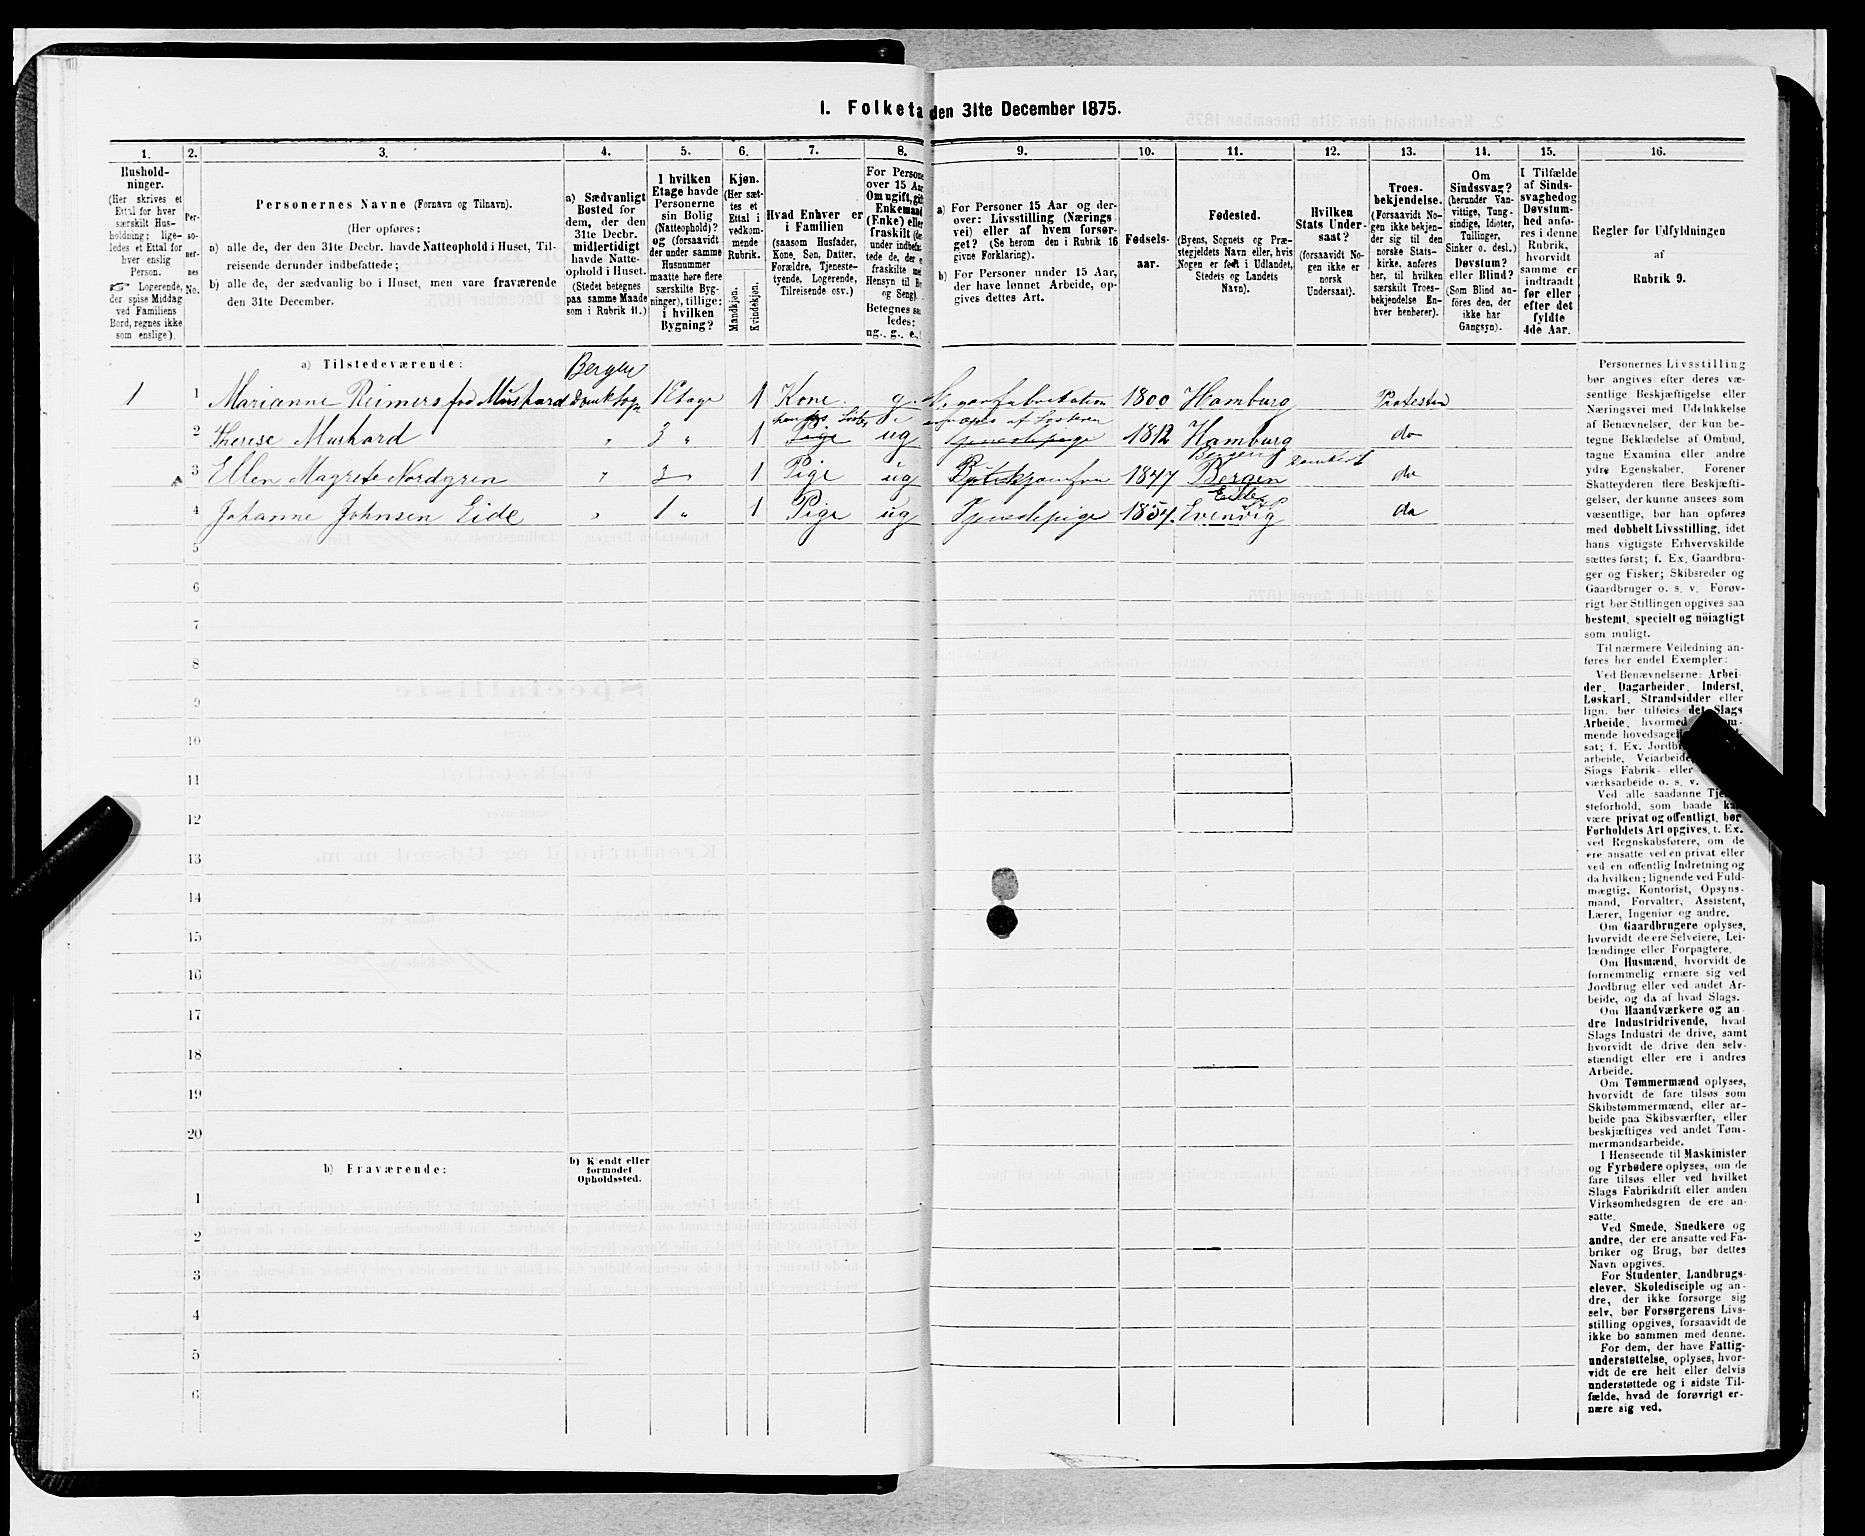 1. Folketa den 31te December 1875.
1. 2. 3. 4. 5. 6. 7. 8. 9. 10. 11. 12. 13. 14. 15. 16.
Hushold-
ninger.
(Her skrives et
Ettal for hver
særskilt Hus-
holdning; lige-
ledes et Ettal for
hver enslig
Person.
Logerende,
der spise Middag
ved Familiens
Bord, regnes ikke
som enslige).
Per-
so-
ner-
nes
No.
Personernes Navne (Fornavn og Tilnavn).
(Her opføres:
a) alle de, der den 31te Decbr. havde Natteophold i Huset, Til-
reisende derunder indbefattede;
b) alle de, der sædvanlig bo i Huset, men vare fraværende
den 31te December.
a) Sædvanligt
Bosted for
dem, der den
31te Decbr.
midlertidigt
havde Natte-
ophold i Huset.
(Stedet betegnes
paa samme Maade
som i Rubrik 11.)
I hvilken
Etage havde
Personerne
sin Bolig
(Natteophold)?
og (forsaavidt
der under samme
Husnummer
maatte høre flere
særskilte Byg-
ninger), tillige:
i hvilken
Bygning?
Kjøn.
(Her sæt-
tes et
Ettal i
vedkom-
mende
Rubrik.
Mandkjøn.
Kvindekjøn.
Hvad Enhver er
i Familien
(saasom Husfader,
Kone, Søn, Datter,
Forældre, Tjeneste-
tyende, Logerende,
Tilreisende osv.)
For Persone
over 15 Aa
Om ugift, gif
Enkemand
(Enke) elle
fraskilt (de
under indbefa
tede de, der e
fraskilte me
Hensyn til Bo
og Seng).
Betegnes sa
ledes:
ug., g., e.,
a) For Personer 15 Aar og der-
over: Livsstilling (Nærings
vei) eller af hvem forsør-
get? (Se herom den i Rubrik 16
givne Forklaring).
b) For Personer under 15 Aar,
der have lønnet Arbeide, op-
gives dettes Art.
Fødsels-
aar.
Fødested.
(Byens, Sognets og Præ-
stegjeldets Navn eller, hvis
Nogen er født i Udlandet,
Stedets og Landets
Navn).
Hvilken
Stats Under-
saat?
(forsaavidt No-
gen ikke er
norsk
Undersaat).
Troes-
bekjendelse.
(Forsaavidt No-
gen ikke bekjen-
der sig til den
norske Stats-
kirke, anføres
her, til hvilken
særskilt Troes-
bekjendelse En-
hver henhører).
Om
Sindssvag?
(herunder Van-
vittige, Tung-
sindige, Idioter,
Tullinger,
Sinker o. desl.)
Døvstum?
eller Blind?
(Som Blind an-
føres den, der
ikke har
Gangsyn).
I Tilfælde
af Sinds-
svaghed og
Døvstum-
hed anfø-
res i denne
Rubrik,
hvorvidt
samme er
indtraadt
før eller
efter det
fyldte
4de Aar.
Regler for Udfyldningen
af
Rubrik 9.
a) Tilstedeværende:
Bergen
1 1 Marianne Reimers fød Mushard Domk Sogn 1 Etage 1 Kone g. 1800 Hamburg Protestan
2 Therese Mushard " 3 " 1 Pige ug Tjenestepige 1812 Hamburg do
Bergens Domkirk
3 Ellen Magrete Nordgren " 1 Pige ug 1847 Bergen do
4 Johanne Johnsen Eide " 1 " 1 Pige ug Tjenestepige 1854. Evenvig do
5
6
7
8
9
10
11
12
13
14
15
16
17
18
19
20
b) Fraværende:
b) Kjendt eller
formodet
Opholdssted.
1
2
3
4
5
6
Personernes Livsstilling
bør angives efter deres væ-
sentlige Beskjæftigelse eller
Næringsvei med Udelukkelse
af Benævnelser, der kun be-
tegne Beklædelse af Ombud,
tagne Examina eller andre
ydre Egenskaber. Forener
Skatteyderen flere Beskjæfti-
gelser, der kunne ansees som
væsentlige, bør han opføres
med dobbelt Livsstilling, idet
hans vigtigste Erhvervskilde
sættes først; f. Ex. Gaardbru-
ger og Fisker; Skibsreder og
Gaardbruger o. s. v. Forøv-
rigt bør Stillingen opgives saa
bestemt, specielt og nöiagtigt
som muligt.
Til nærmere Veiledning an-
føres her endel Exempler:
Ved Benævnelserne: Arbei-
der, Dagarbeider, Inderst,
Løskarl, Strandsidder eller
lign. bør tilføies det Slags
Arbeide, hvormed
mende hovedsagel
sat; f. Ex. Jordbr
arbeide, Veiarbeide,
Slags Fabrik- eller
værksarbeide o. s. v.
Ved alle saadanne Tje
steforhold, som baade
være privat og offentligt, bør
Forholdets Art opgives, t. Ex.
ved Regnskabsførere, om de
ere ansatte ved en privat eller
ved en offentlig Indretning og
da hvilken; lignende ved Fuld-
mægtig, Kontorist, Opsyns-
mand, Forvalter, Assistent,
Lærer, Ingeniør og andre.
Om Gaardbrugere oplyses,
hvorvidt de ere Selveiere, Lei-
lændinge eller Forpagtere.
Om Husmænd, hvorvidt de
fornemmelig ernære sig ved
Jordbrug eller ved andet Ar-
beide, og da af hvad Slags.
Om Haandværkere og an
dre Industridrivende, hvad
Slags Industri de drive, samt
hvorvidt de drive den selv-
stændigt eller ere i andres
Arbeide.
Om Tømmermænd oplyses,
hvorvidt de fare tilsøs som
Skibstømmermænd, eller ar-
beide paa Skibsværfter, eller
beskjæftiges ved andet Tøm-
mermandsarbeide.
I Henseende til Maskinister
og Fyrbødere oplyses, om de
fare tilsøs eller ved hvilket
Slags Fabrikdrift eller anden
Virksomhedsgren de ere an-
satte.
Ved Smede, Snedkere og
andre, der ere ansatte ved Fa-
briker og Brug, bør dettes
Navn opgives.
For Studenter, Landbrugs-
elever, Skoledisciple og an-
dre, der ikke forsørge sig
selv, bør Forsørgerens Livs-
stilling opgives, forsaavidt de
ikke bo sammen med denne.
For dem, der have Fattig-
understøttelse, oplyses, hvor-
vidt de ere helt eller delvis
understøttede og i sidste Til-
fælde, hvad de forøvrigt er-
nære sig ved.